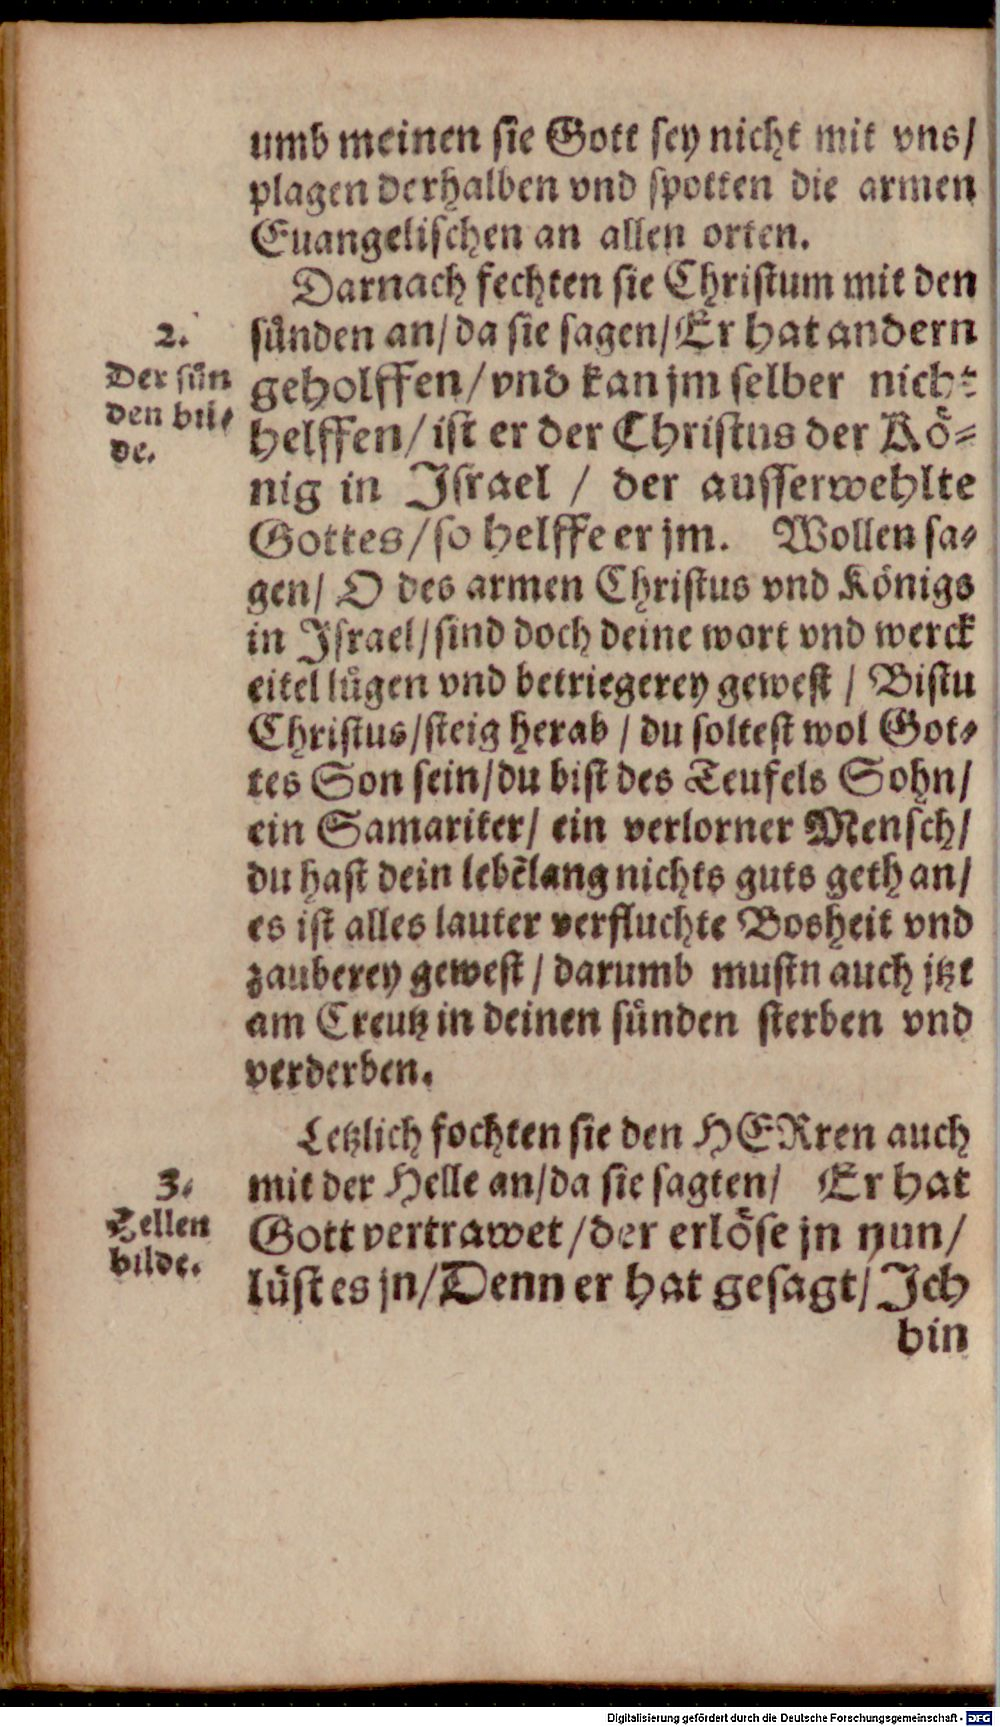 umb meinen sie Gott sey nicht mit vns/
plagen derhalben vnd spotten die armen
Euangelischen an allen orten.
Darnach fechten sie Christum mit den
2.
Der sün
den bil⸗
de.
sünden an/da sie sagen/Er hat andern
geholffen/vnd kan jm selber nicht
helffen/ist er der Christus der Kö⸗
nig in Israel / der ausserwehlte
Gottes/so helffe er jm. Wollen sa⸗
gen/ O des armen Christus vnd Königs
in Israel/sind doch deine wort vnd werck
eitel lügen vnd betriegerey gewest / Bistu
Christus/steig herab / du soltest wol Got⸗
tes Son sein/du bist des Teufels Sohn/
ein Samariter/ ein verlorner Mensch/
du hast dein lebẽlang nichts guts gethan/
es ist alles lauter verfluchte Bosheit vnd
zauberey gewest / darumb mustn auch jtzt
am Creutz in deinen sünden sterben vnd
verderben.
Letzlich fochten sie den HERren auch
3.
Hellen
bilde.
mit der Helle an/da sie sagten/ Er hat
Gott vertrawet/der erlöse jn nun/
lüst es jn/Denn er hat gesagt/Ich
bin
Digitalisierung gefördert durch die Deutsche Forschungsgemeinschaft - DFG